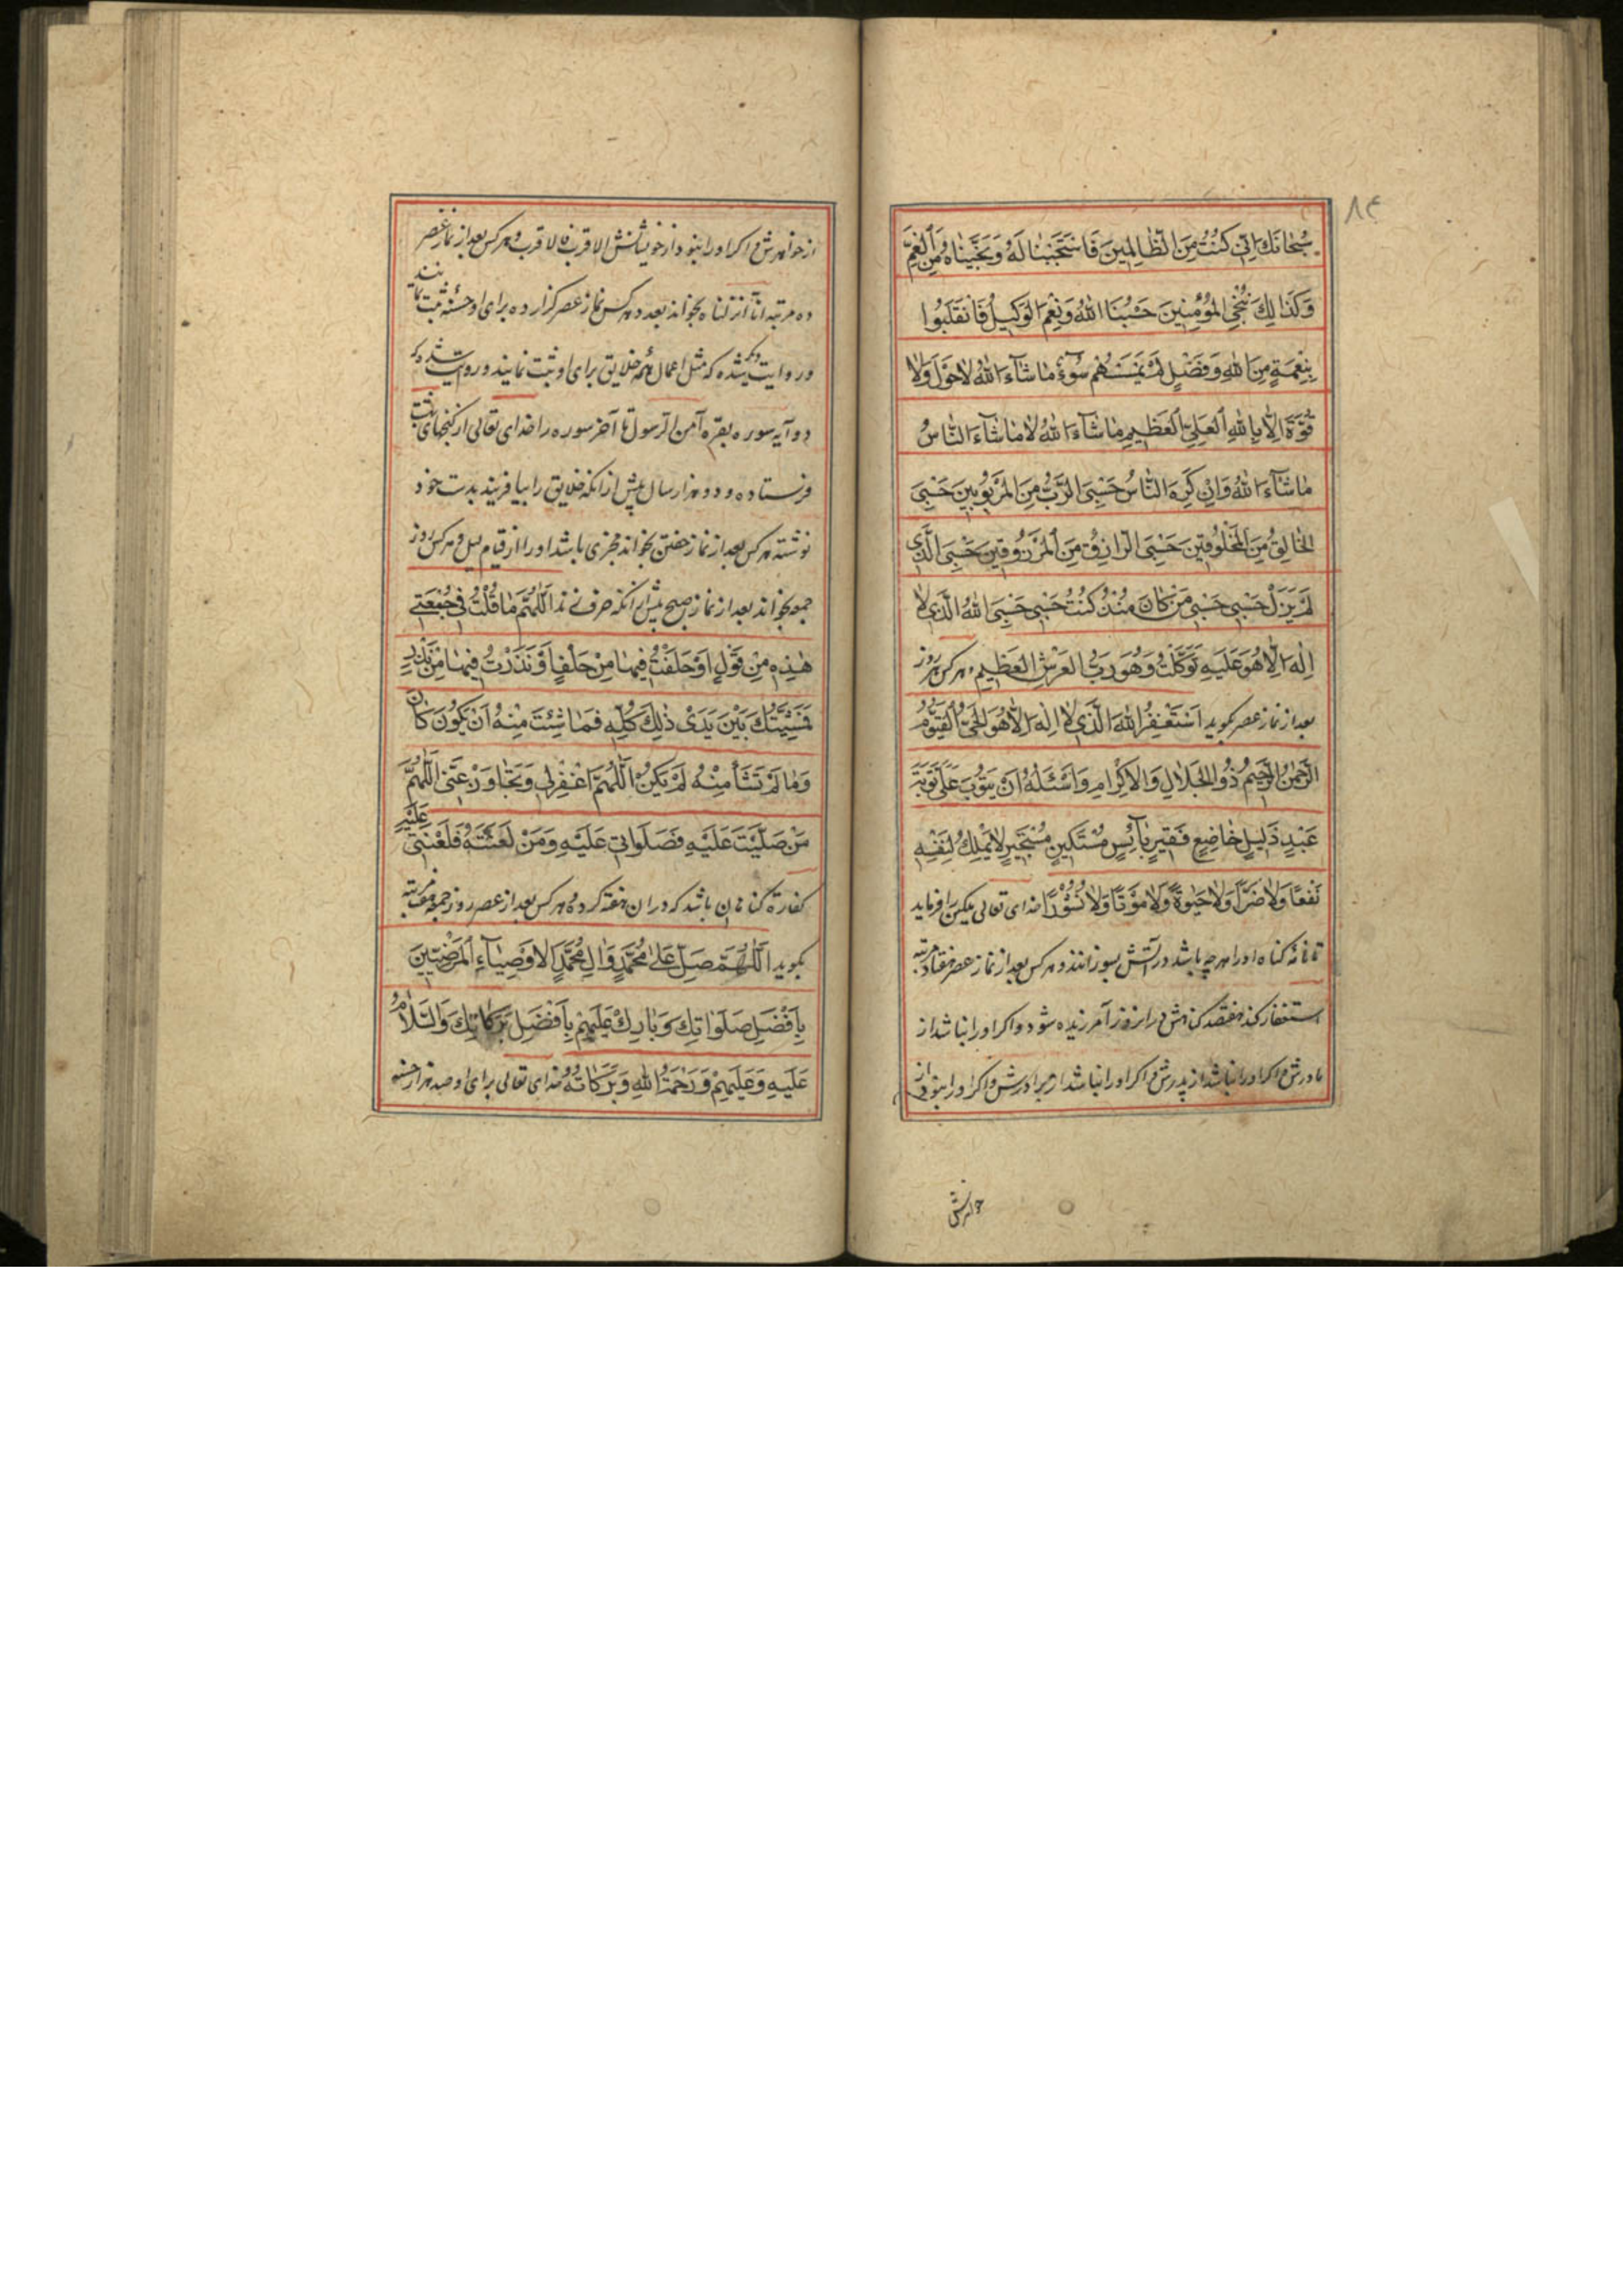 ۸۴
سُبْحَانَكَ اِنّی كُنْتُ مِنَ الظَّالِمینَ فَاسْتَجَبْنَا لَهُ وَنَجَّیْنَاهُ مِنَ الْغَمِّ
وَكَذَالِكَ نُنْجِی الْمُؤْمِنینَ حَسْبُنَا اللّٰهُ وَنِعْمَ الْوَكیلُ فَانْقَلَبُوا
بِنِعْمَةٍ مِنَ اللّٰهِ وَفَضْلٍ لَمْ یَمْسَسْهُمْ سُوٓءٌ مَاشَآءَ اللّٰهُ لَاحَوْلَ وَلَا
قُوَّةَ اِلَّا بِاللّٰهِ الْعَلِیِّ الْعَظیمِ مَاشَآءَ اللّٰهُ لَا مَاشَآءَ النَّاسُ
مَاشَآءَ اللّٰهُ وَاِنْ كَرِهَ النَّاسُ حَسْبِیَ الرَّبُّ مِنَ الْمَرْبُوبینَ حَسْبِیَ
الْخَالِقُ مِنَ الْمَخْلُوقینَ حَسْبِیَ الرَّازِقُ مِنَ الْمَرْزُوقینَ حَسْبِیَ الَّذی
لَمْ یَزَلْ حَسْبی حَسْبی مَنْ كَانَ مُنْذُ كُنْتُ حَسْبی حَسْبِیَ اللّٰهُ الَّذی لَا
اِلٰهَ اِلَّا هُوَ عَلَیْهِ تَوَكَّلْتُ وَهُوَ رَبُّ الْعَرْشِ الْعَظیمِ و هر کس هر روز
بعد از نماز عصر بکوید اَسْتَغْفِرُ اللّٰهَ الَّذی لَا اِلٰهَ اِلَّا هُوَ الْحَیُّ الْقَیُّومُ
الرَّحْمٰنُ الرَّحیمُ ذُو الْجَلَالِ وَالْاِكْرَامِ وَاَسْئَلُهُ اَنْ یَتُوبَ عَلَیَّ تَوْبَةَ
عَبْدٍ ذَلیلٍ خَاضِعٍ فَقیرٍ بَآئِسٍ مُسْتَكینٍ مُسْتَجیرٍ لَا یَمْلِكُ لِنَفْسِهِ
نَفْعًا وَلَا ضَرًّا وَلَا حَیٰوةً وَلَا مَوْتًا وَلَا نُشُورًا خدای تعالی ملکین را فرماید
تا نامه کناه او را هر چه باشد در آتش بسوزانند و هر کس بعد از نماز عصر هفتاد مرتبه
استغفار کند هفتصد کناهش در انروز آمرزیده شود و اکر او را نباشد از
مادرش و اکر او را نباشد از پدرش و اکر او را نباشد از برادرش و اکر او را نبود از
خواهرش
از خواهرش و اکر او را نبود از خویشانش الاقرب فالاقرب و هر کس بعد از نماز عصر
ده مرتبه انا انزلناه بخواند بعدد هر کس نماز عصر کزارده برای او حسنه ثبت نمایند
و روایت دیکر شده که مثل اعمال همه خلایق برای او ثبت نمایند و روایت شده که
دو آیه سوره بقره آمن الرسول تا آخر سوره را خدای تعالی از کنجهای بهشت
فرستاده و دو هزار سال پیش از انکه خلایق را بیافریند بدست خود
نوشته هر کس بعد از نماز خفتن بخواند مجزی باشد او را از قیام لیل و هر کس روز
جمعه بخواند بعد از نماز صبح پیش از انکه حرف زند اَللّٰهُمَّ مَا قُلْتُ فی جُمُعَتی
هٰذِهِ مِنْ قَوْلٍ اَوْ حَلَفْتُ فیهَا مِنْ حَلْفٍ اَوْ نَذَرْتُ فیهَا مِنْ نَذْرٍ
فَمَشِیَّتُكَ بَیْنَ یَدَیْ ذٰلِكَ كُلِّهِ فَمَا شِئْتَ مِنْهُ اَنْ یَكُونَ كَانَ
وَمَا لَمْ تَشَأْ مِنْهُ لَمْ یَكُنْ اَللّٰهُمَّ اغْفِرْ لی وَتَجَاوَزْ عَنّی اَللّٰهُمَّ
مَنْ صَلَّیْتَ عَلَیْهِ فَصَلَوَاتی عَلَیْهِ وَمَنْ لَعَنْتَهُ فَلَعْنَتی عَلَیْهِ
کفارهٔ کناهان باشد که در ان هفته کرده و هر کس بعد از عصر روز جمعه هفت مرتبه
بکوید اَللّٰهُمَّ صَلِّ عَلٰی مُحَمَّدٍ وَالِ مُحَمَّدٍ الْاَوْصِیَآءِ الْمَرْضِیّینَ
بِاَفْضَلِ صَلَوَاتِكَ وَبَارِكْ عَلَیْهِمْ بِاَفْضَلِ بَرَكَاتِكَ وَالسَّلَامُ
عَلَیْهِ وَعَلَیْهِمْ وَرَحْمَةُ اللّٰهِ وَبَرَكَاتُهُ خدای تعالی برای او صد هزار حسنه